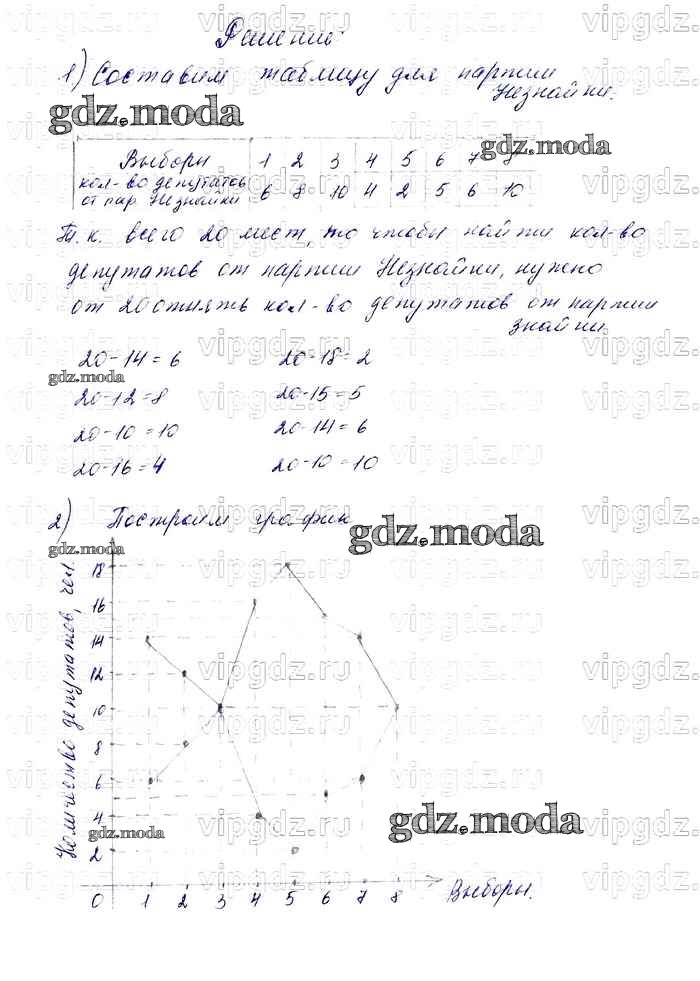 Решение:
1) Составим таблицу для партии
Незнайки.
gdz.moda
gdz.moda
Выборы 1 2 3 4 5 6 7 8
кол-во депутатов
от пар. Незнайки 6 8 10 4 2 5 6 10
Т.к. всего 20 мест, то чтобы найти кол-во
депутатов от партии Незнайки, нужно
от 20 отнять кол-во депутатов от партии
знайки.
20-14=6 20-18=2
gdz.moda
20-12=8 20-15=5
20-10=10 20-14=6
20-16=4 20-10=10
2) Построим график
gdz.moda
gdz.moda
Количество депутатов, чел.
18
16
14
12
10
8
6
4
2
gdz.moda
gdz.moda
0 1 2 3 4 5 6 7 8 Выборы.
vipgdz.ru